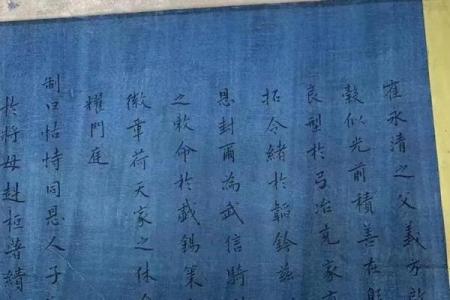 崔永清之父義方
穀似光前積善在
良型於弓冶克家
拓令緒於韜鈐茲
恩封爾為武信騎
之敕命於戲錫策
徽章荷天家之休
耀門庭
制曰怙恃同恩人子
於將母赳桓著績